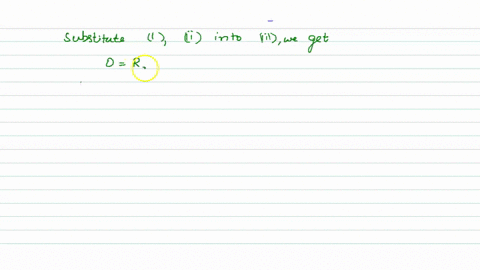 Substitute (i), (ii) into (iii), we get
D = R.